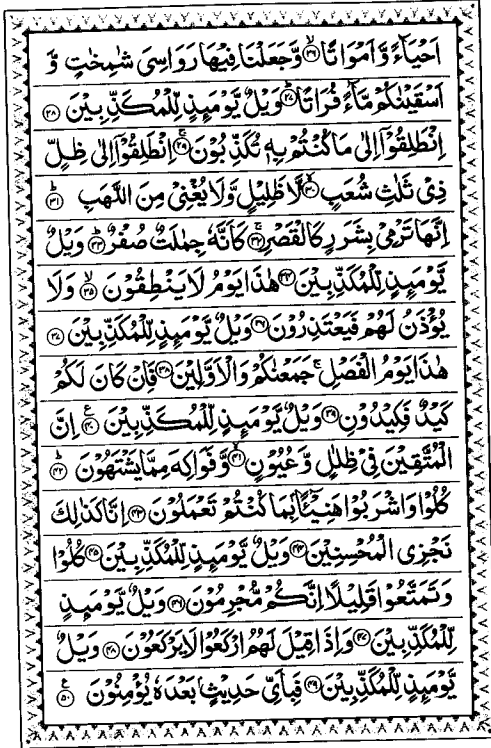 اَحْيَآءً وَّاَمْوَاتًا ۙ﴿۲۶﴾ وَّجَعَلْنَا فِيْهَا رَوَاسِىَ شٰمِخٰتٍ وَّ
اَسْقَيْنٰكُمْ مَّآءً فُرَاتًا ؕ﴿۲۷﴾ وَيْلٌ يَّوْمَئِذٍ لِّلْمُكَذِّبِيْنَ ﴿۲۸﴾
اِنْطَلِقُوْۤا اِلٰى مَا كُنْتُمْ بِهٖ تُكَذِّبُوْنَ ۚ﴿۲۹﴾ اِنْطَلِقُوْۤا اِلٰى ظِلٍّ
ذِىْ ثَلٰثِ شُعَبٍ ۙ﴿۳۰﴾ لَّا ظَلِيْلٍ وَّلَا يُغْنِىْ مِنَ اللَّهَبِ ؕ﴿۳۱﴾
اِنَّهَا تَرْمِىْ بِشَرَرٍ كَالْقَصْرِ ۚ﴿۳۲﴾ كَاَنَّهٗ جِمٰلَتٌ صُفْرٌ ؕ﴿۳۳﴾ وَيْلٌ
يَّوْمَئِذٍ لِّلْمُكَذِّبِيْنَ ﴿۳۴﴾ هٰذَا يَوْمُ لَا يَنْطِقُوْنَ ۙ﴿۳۵﴾ وَلَا
يُؤْذَنُ لَهُمْ فَيَعْتَذِرُوْنَ ﴿۳۶﴾ وَيْلٌ يَّوْمَئِذٍ لِّلْمُكَذِّبِيْنَ ﴿۳۷﴾
هٰذَا يَوْمُ الْفَصْلِ ۚ جَمَعْنٰكُمْ وَالْاَوَّلِيْنَ ﴿۳۸﴾ فَاِنْ كَانَ لَكُمْ
كَيْدٌ فَكِيْدُوْنِ ﴿۳۹﴾ وَيْلٌ يَّوْمَئِذٍ لِّلْمُكَذِّبِيْنَ ﴿۴۰﴾ ع اِنَّ
الْمُتَّقِيْنَ فِىْ ظِلٰلٍ وَّعُيُوْنٍ ۙ﴿۴۱﴾ وَّفَوَاكِهَ مِمَّا يَشْتَهُوْنَ ؕ﴿۴۲﴾
كُلُوْا وَاشْرَبُوْا هَنِيْٓـئًۢا بِمَا كُنْتُمْ تَعْمَلُوْنَ ﴿۴۳﴾ اِنَّا كَذٰلِكَ
نَجْزِى الْمُحْسِنِيْنَ ﴿۴۴﴾ وَيْلٌ يَّوْمَئِذٍ لِّلْمُكَذِّبِيْنَ ﴿۴۵﴾ كُلُوْا
وَتَمَتَّعُوْا قَلِيْلًا اِنَّكُمْ مُّجْرِمُوْنَ ﴿۴۶﴾ وَيْلٌ يَّوْمَئِذٍ
لِّلْمُكَذِّبِيْنَ ﴿۴۷﴾ وَاِذَا قِيْلَ لَهُمُ ارْكَعُوْا لَا يَرْكَعُوْنَ ﴿۴۸﴾ وَيْلٌ
يَّوْمَئِذٍ لِّلْمُكَذِّبِيْنَ ﴿۴۹﴾ فَبِاَىِّ حَدِيْثٍۭ بَعْدَهٗ يُؤْمِنُوْنَ ﴿۵۰﴾ ع